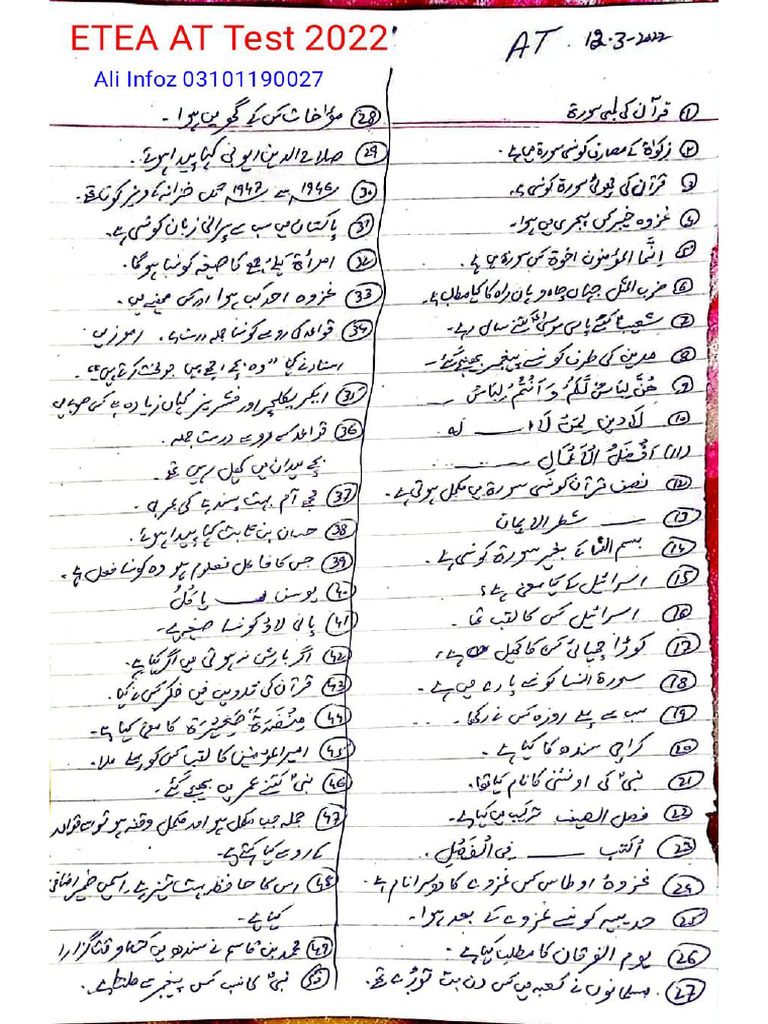 ETEA AT Test 2022
Ali Infoz 03101190027
AT . 12-3-2022
① قرآن کی لمبی سورۃ
② زکوٰۃ کے مصارف کونسی سورۃ میں ہے۔
③ قرآن کی چھوٹی سورۃ کونسی ہے۔
④ غزوہ خیبر کس ہجری میں ہوا۔
⑤ اِنَّمَا المؤمنون اخوۃ کس سورۃ میں ہے۔
⑥ ضرب المثل جہاں چاہ وہاں راہ کا کیا مطلب ہے۔
⑦ شعیبؑ کے پاس موسیٰؑ کتنے سال رہے۔
⑧ مدین کی طرف کونسے پیغمبر بھیجے گئے۔
⑨ ھُنَّ لِبَاسٌ لَّکُمْ وَ اَنْتُمْ لِبَاسٌ ــــ
⑩ لَا دِینَ لِمَنْ لَا ــــ لہ
(11) اَفْضَلُ الْاَعْمَالِ ــــ
⑫ نصف قرآن کونسی سورۃ میں مکمل ہوتی ہے۔
⑬ ــــ شطر الایمان
⑭ بسم اللہ کے بغیر سورۃ کونسی ہے۔
⑮ اسرائیل کے کیا معنی ہے؟
⑯ اسرائیل کس کا لقب تھا۔
⑰ کوڑا چھپائی کس کا کھیل ہے؟
⑱ سورۃ النسا کونسے پارے میں ہے۔
⑲ سب سے پہلے روزہ کس نے رکھا۔
⑳ کراچی سندھ کا کیا ہے۔
㉑ نبیؐ کی اونٹنی کا نام کیا تھا۔
㉒ فصل الصیف ترکیب میں کیا ہے۔
㉓ اُکتب ــــ فِی الْفَصْلِ۔
㉔ غزوۂ اوطاس کس غزوے کا دوسرا نام ہے۔
㉕ حدیبیہ کونسے غزوے کے بعد ہوا۔
㉖ یوم الفرقان کا مطلب کیا ہے۔
㉗ مسلمانوں نے کعبہ میں کس دن بت توڑے تھے۔
㉘ مؤاخات کس کے گھر میں ہوا۔
㉙ صلاح الدین ایوبی کہاں پیدا ہوئے۔
㉚ 1946ء سے 1947ء تک خزانہ کے وزیر کون تھے۔
㉛ پاکستان میں سب سے پرانی زبان کونسی ہے۔
㉜ امراۃ کیلئے جمع کا صیغہ کونسا ہوگا۔
㉝ غزوہ احد کب ہوا اور کس مہینے میں۔
㉞ قواعد کی رو سے کونسا جملہ درست ہے۔
استاد نے کہا "وہ بچے اچھے ہیں جو محنت کرتے ہیں"۔
㉟ ایگریکلچر اور فشریز کہاں زیادہ ہے کس صوبے میں
㊱ قواعد کے رو سے درست جملہ۔
بچے میدان میں کھیل رہے تھے۔
㊲ مجھے آم بہت پسند ہے
㊳ حسان بن ثابت کہاں پیدا ہوئے۔
㊴ جس کا فاعل معلوم ہو وہ کونسا فعل ہے۔
㊵ یوسف ــــ یاکُلُ
㊶ پانی لاؤ کونسا صیغہ ہے۔
㊷ اگر بارش نہ ہوتی میں اگر کیا ہے۔
㊸ قرآن کی تدوین میں فکر کس نے کیا۔
㊹ کا معنی کیا ہے۔
㊺ امیرالمؤمنین کا لقب کس کو پہلے ملا۔
㊻ نبیؐ کتنے عمر میں بھیجے گئے۔
㊼ جملہ جب مکمل ہو اور مکمل وقفہ ہو تو قواعد
کے رو سے کیا کہتے ہے۔
㊽ اس کا حافظہ بہت تیز ہے، اسمیں ضمیر اضافی
کیا ہے۔
㊾ محمد بن قاسم نے سندھ میں کتنا وقت گزارا
㊿ نبیؐ کا نسب کس پیغمبر سے ملتا ہے۔